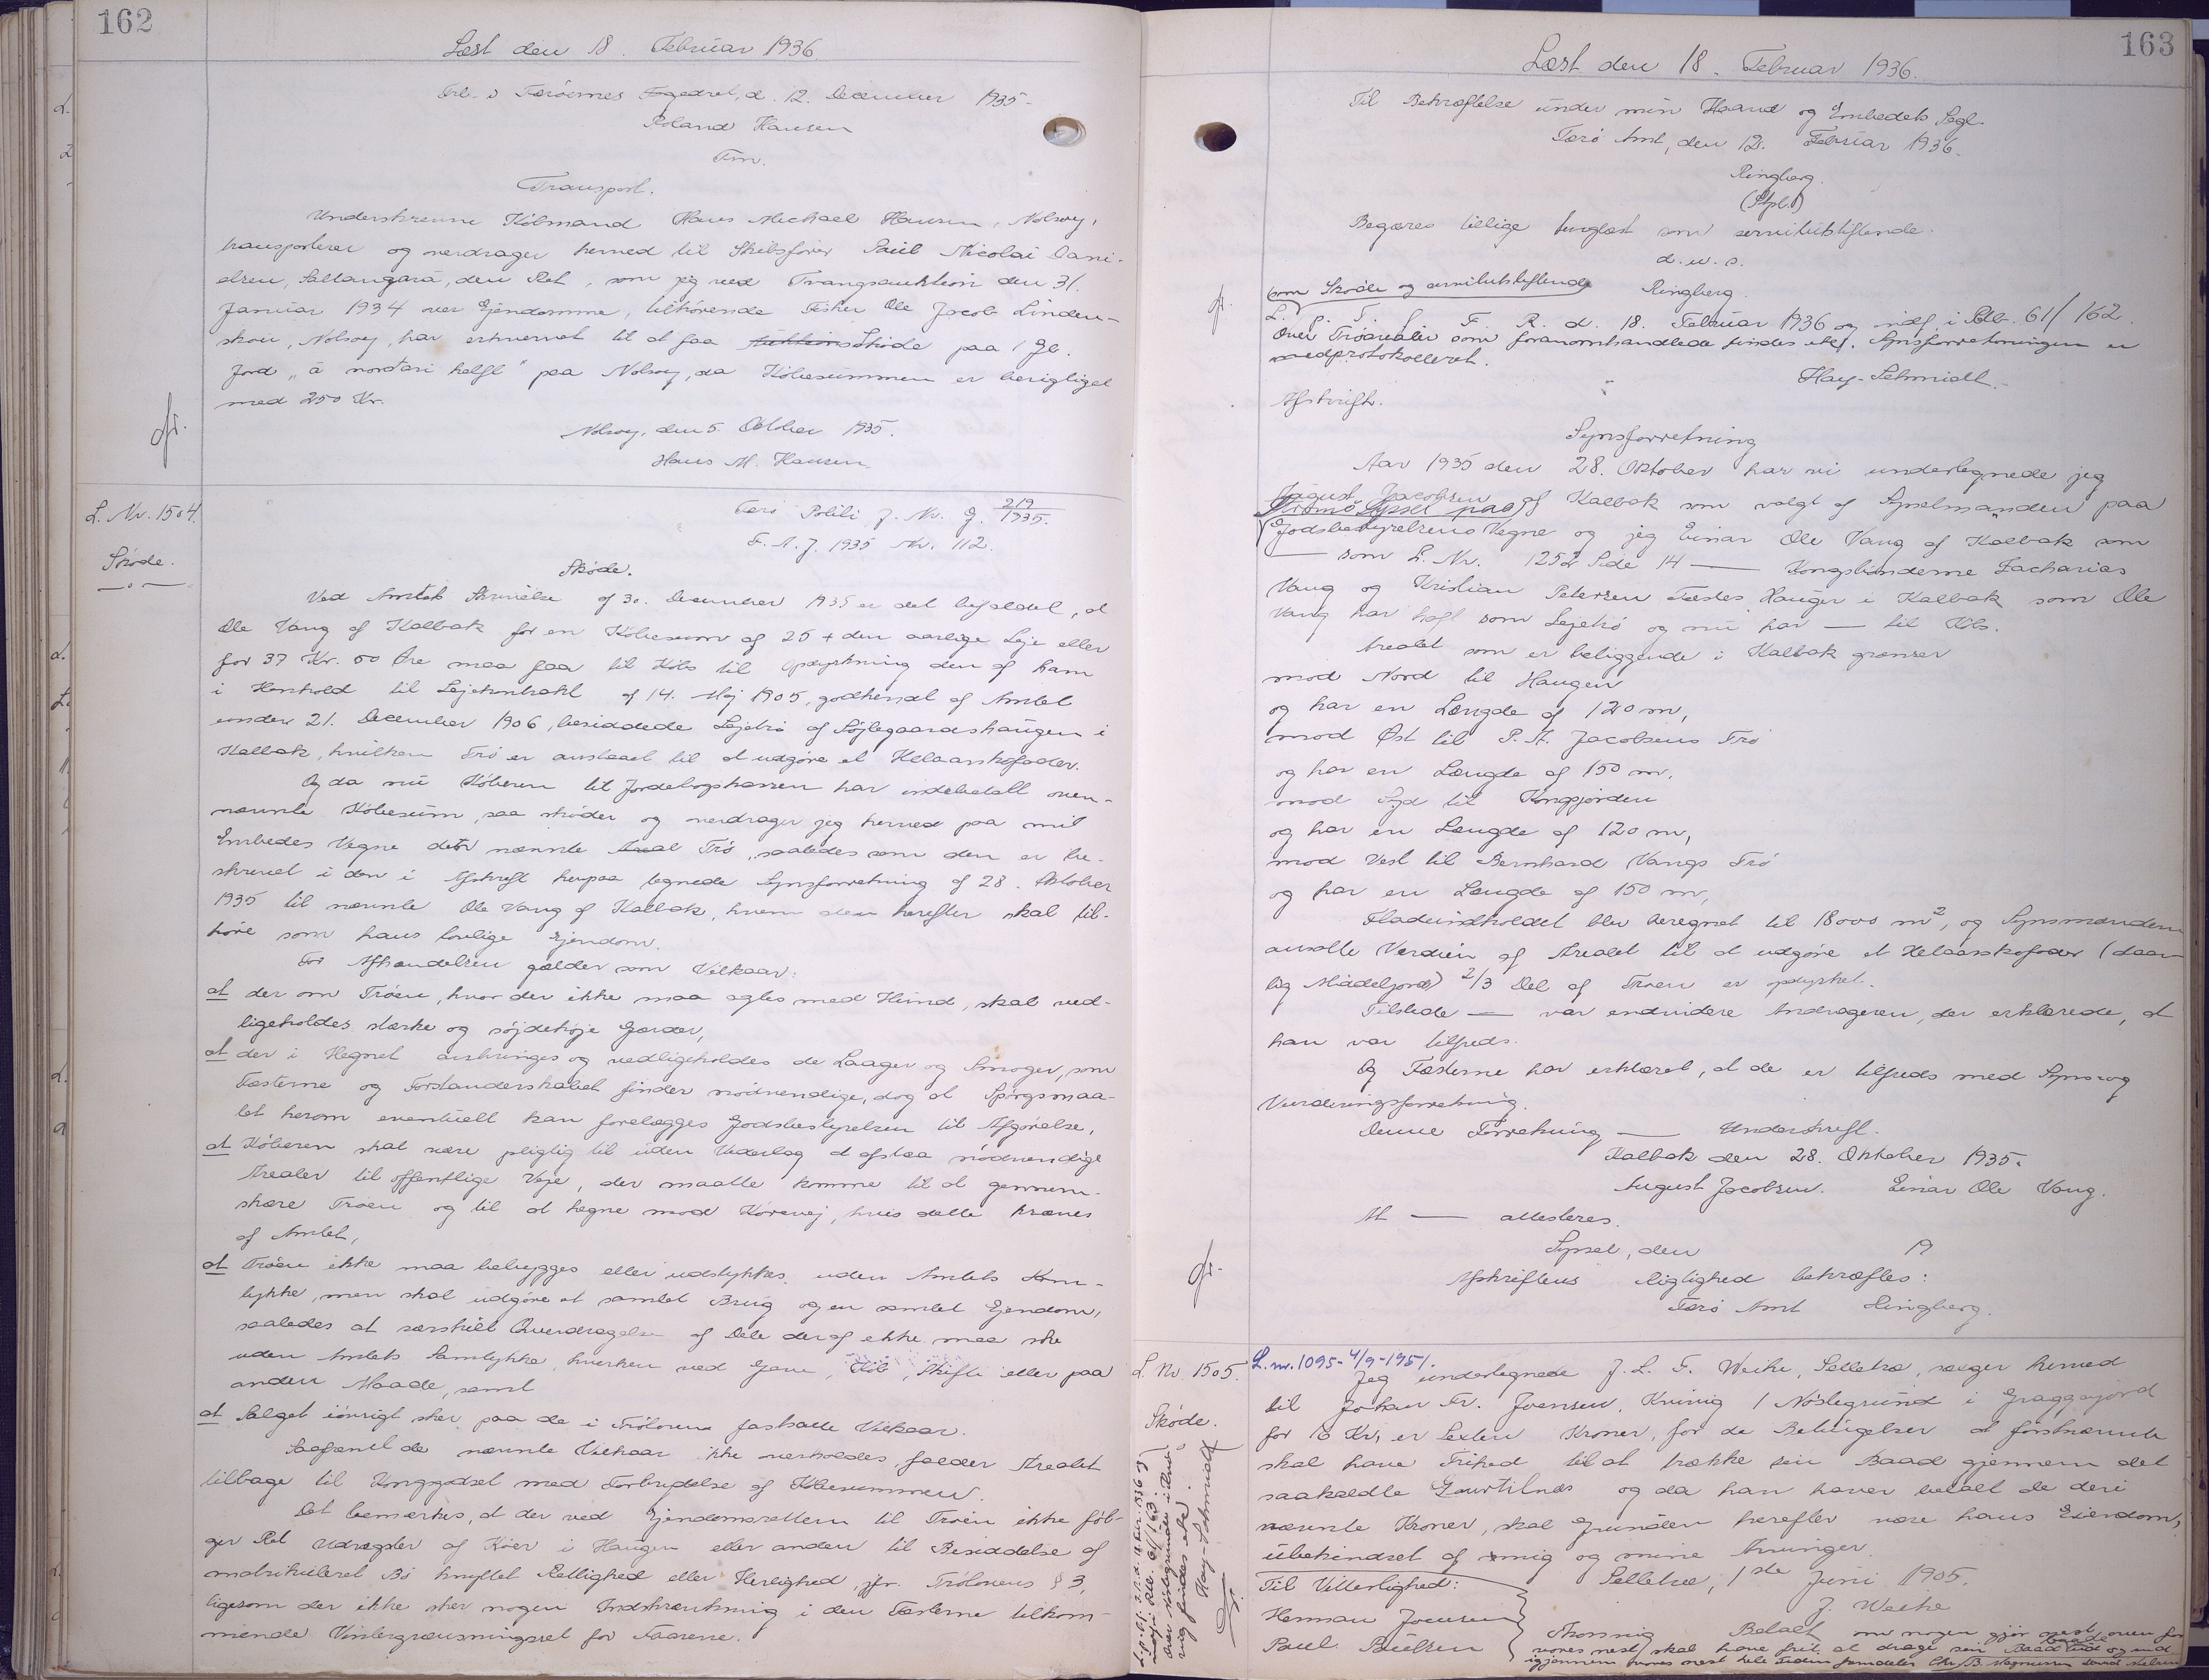 162
Læst den 18. Februar 1936.
Frl. i Færøernes Fogedret, d. 12. December 1935-
Roland Hansen
Fm.
Transport.
Underskrevne Købmand Hans Michael Hansen, Nolsoy,
transporterer og overdrager herved til Skibsfører Paul Nicolai Dani-
elsen, Saltangará, den Ret, som jeg ved Tvangsauktion den 31.
Januar 1934 over Ejendomme, tilhørende Fisker Ole Jacob Linden-
skov, Nolsoy, har erhvervet til at faa Auktionsskøde paa 1 Gl.
Jord "á norðari helft" paa Nolsoy, da Købesummen er berigtiget
med 250 Kr.
Nolsoy, den 5. October 1935.
Hans M. Hansen.
L. Nr. 1504.
Skøde.
Færø Politi J. Nr. G. 219/1935.
F. A. J. 1935 Nr. 112.
Skøde.
Ved Amtets Skrivelse af 30. December 1935 er det befalet, at
Ole Vang af Kalbak for en Købesum af 25 + den aarlige Leje eller
for 37 Kr. 50 Øre maa faa til Købs til Opdyrkning den af ham
i Henhold til Lejekontrakt af 14. Maj 1905, godkendt af Amtet
under 21. December 1906, besiddede Lejetrø af Søjlegaardshaugen i
Kalbak, hvilken Trø er anslaaet til at udgøre et Helaarskofoder.
Og da nu Køberen til Jordebogskassen har indebetalt oven-
nævnte Købesum, saa skøder og overdrager jeg herved paa mit
Embedes Vegne den nævnte Areal Trø, saaledes som den er be-
skrevet i den i Afskrift herpaa tegnede Synsforretning af 28. Oktober
1935 til nævnte Ole Vang af Kalbak, hvem den herefter skal til-
høre som hans lovlige Ejendom.
For Afhændelsen gælder som Vilkaar:
at der om Trøen, hvor der ikke maa agtes med Hund, skal ved-
ligeholdes stærke og søjdehøje Gærder,
at der i Hegnet anbringes og vedligeholdes de Laager og Smoger, som
Fæsterne og Forstanderskabet finder nødvendige, dog at Spørgsmaa-
let herom eventuelt kan forelægges Jordbestyrelsen til Afgørelse,
at Køberen skal være pligtig til uden Vederlag at afstaa nødvendige
Arealer til offentlige Veje, der maatte komme til at gennem-
skære Trøen og til at hegne mod Kørevej, hvis dette kræves
af Amtet,
at Trøen ikke maa bebygges eller udstykkes uden Amtets Sam-
tykke, men skal udgøre et samlet Brug og en samlet Ejendom,
saaledes at særskilt Overdragelse af Dele deraf ikke maa ske
uden Amtets Samtykke, hverken ved Gave, Køb, Skifte eller paa
anden Maade, samt
at Salget iøvrigt sker paa de i Trøloven fastsatte Vilkaar.
Saafremt de nævnte Vilkaar ikke overholdes, falder Arealet
tilbage til Kongsgodset med Fortrydelse af Købesummen.
Det bemærkes, at der ved Ejendomsretten til Trøen ikke føl-
ger Ret Udregsler af Køer i Haugen eller anden til Besiddelse af
matrikuleret Bø knyttet Rettighed eller Herlighed, jfr. Trølovens § 3,
ligesom der ikke sker nogen Indskrænkning i den Fæsterne tilkom-
mende Vintergræsningsret for Faarene.
163
Læst den 18. Februar 1936.
Til Bekræftelse under min Haand og Embedets Segl.
Færø Amt, den 12. Februar 1936.
Ringberg.
(Stpl.)
Begæres tillige tinglæst som servitutstiftende.
d. u. s.
Ringberg.
som Skøde og servitutstiftende
L. p. T. f. F. R. d. 18. Februar 1936 og indf. i Pdb. 61/162.
Over Trøarealer som foranomhandlede findes ebl. Synsforretningen er
medprotokolleret.
Hay-Schmidt.
Afskrift.
Synsforretning
Aar 1935 den 28. Oktober har vi undertegnede jeg
August Jacobsen af Kalbak som valgt af Sysselmanden paa
Strømø Syssel paa
Jordbestyrelsens Vegne og jeg Einar Ole Vang af Kalbak som
— som L. Nr. 1252 Side 14 — Kongsbønderne Zacharias
Vang og Kristian Petersen Fæstes Hauger i Kalbak som Ole
Vang har haft som Lejetrø og nu har — til Købs.
Arealet som er beliggende i Kalbak grænser
mod Nord til Haugen
og har en Længde af 120 m,
mod Øst til P. A. Jacobsens Trø
og har en Længde af 150 m,
mod Syd til Kongsjorden
og har en Længde af 120 m,
mod Vest til Bernhard Vangs Trø
og har en Længde af 150 m,
Fladeindholdet blev beregnet til 18000 m², og Synsmændene
ansatte Værdien af Arealet til at udgøre et Helaarskofoder (daar-
lig Middeljord) 2/3 Del af Trøen er opdyrket.
Tilstede — var endvidere Andrageren, der erklærede, at
han var tilfreds.
Og Fæsterne har erklæret, at de er tilfreds med Syns- og
Vurderingsforretning.
Denne Forretning — Underskrift.
Kalbak den 28. Oktober 1935.
August Jacobsen. Einar Ole Vang.
At — attesteres.
Syssel, den 19
Afskriftens Rigtighed bekræftes:
Færø Amt Ringberg.
L. Nr. 1505.
Skøde.
L. nr. 1095-4/9-1951.
Jeg undertegnede J. L. F. Weihe, Selletræ, sælger herved
til Johan Fr. Joensen, Kvivig 1 Nøstegrund i Graggefjord
for 16 Kr, er Sexten Kroner, for de Betingelser at førstnævnte
skal have Frihed til at trække sin Baad gjennem det
saakaldte Gourtilnæs og da han haver betalt de deri
nævnte Kroner, skal Grunden herefter være hans Eiendom,
ubehindret af mig og mine Arvinger.
Selletræ, 1ste Juni 1905.
J. Weihe
Til Vitterlighed:
Herman Joensen
Paul Poulsen
Betalt om nogen gjør nest oven for
vores nest, skal have frit at drage sin Baad ud og ind
igjennem vores nest
L. p. T. f. F. R. d. 18 Febr. 1936 og
indf. i Pdb. 61/163.
Over Nøstegrunde i Kvi-
vig findes ebl.
Hay-Schmidt